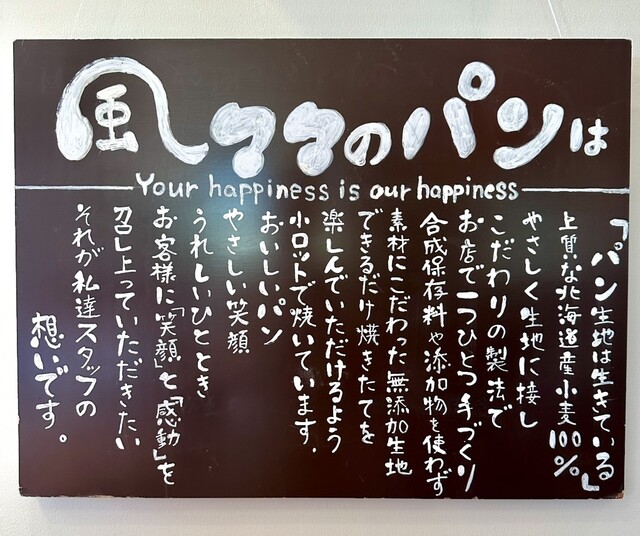 風タタのパンは
Your happiness is our happiness
「パン生地は生きている」
上質な北海道産小麦100%
やさしく生地に接し
こだわりの製法で
お店で一つひとつ手づくり
合成保存料や添加物を使わず
素材にこだわった無添加生地
できるだけ焼きたてを
楽しんでいただけるよう
小ロットで焼いています.
おいしいパン
やさしい笑顔
うれしいひととき
お客様に「笑顔」と「感動」を
召し上っていただきたい
それが私達スタッフの
想いです。